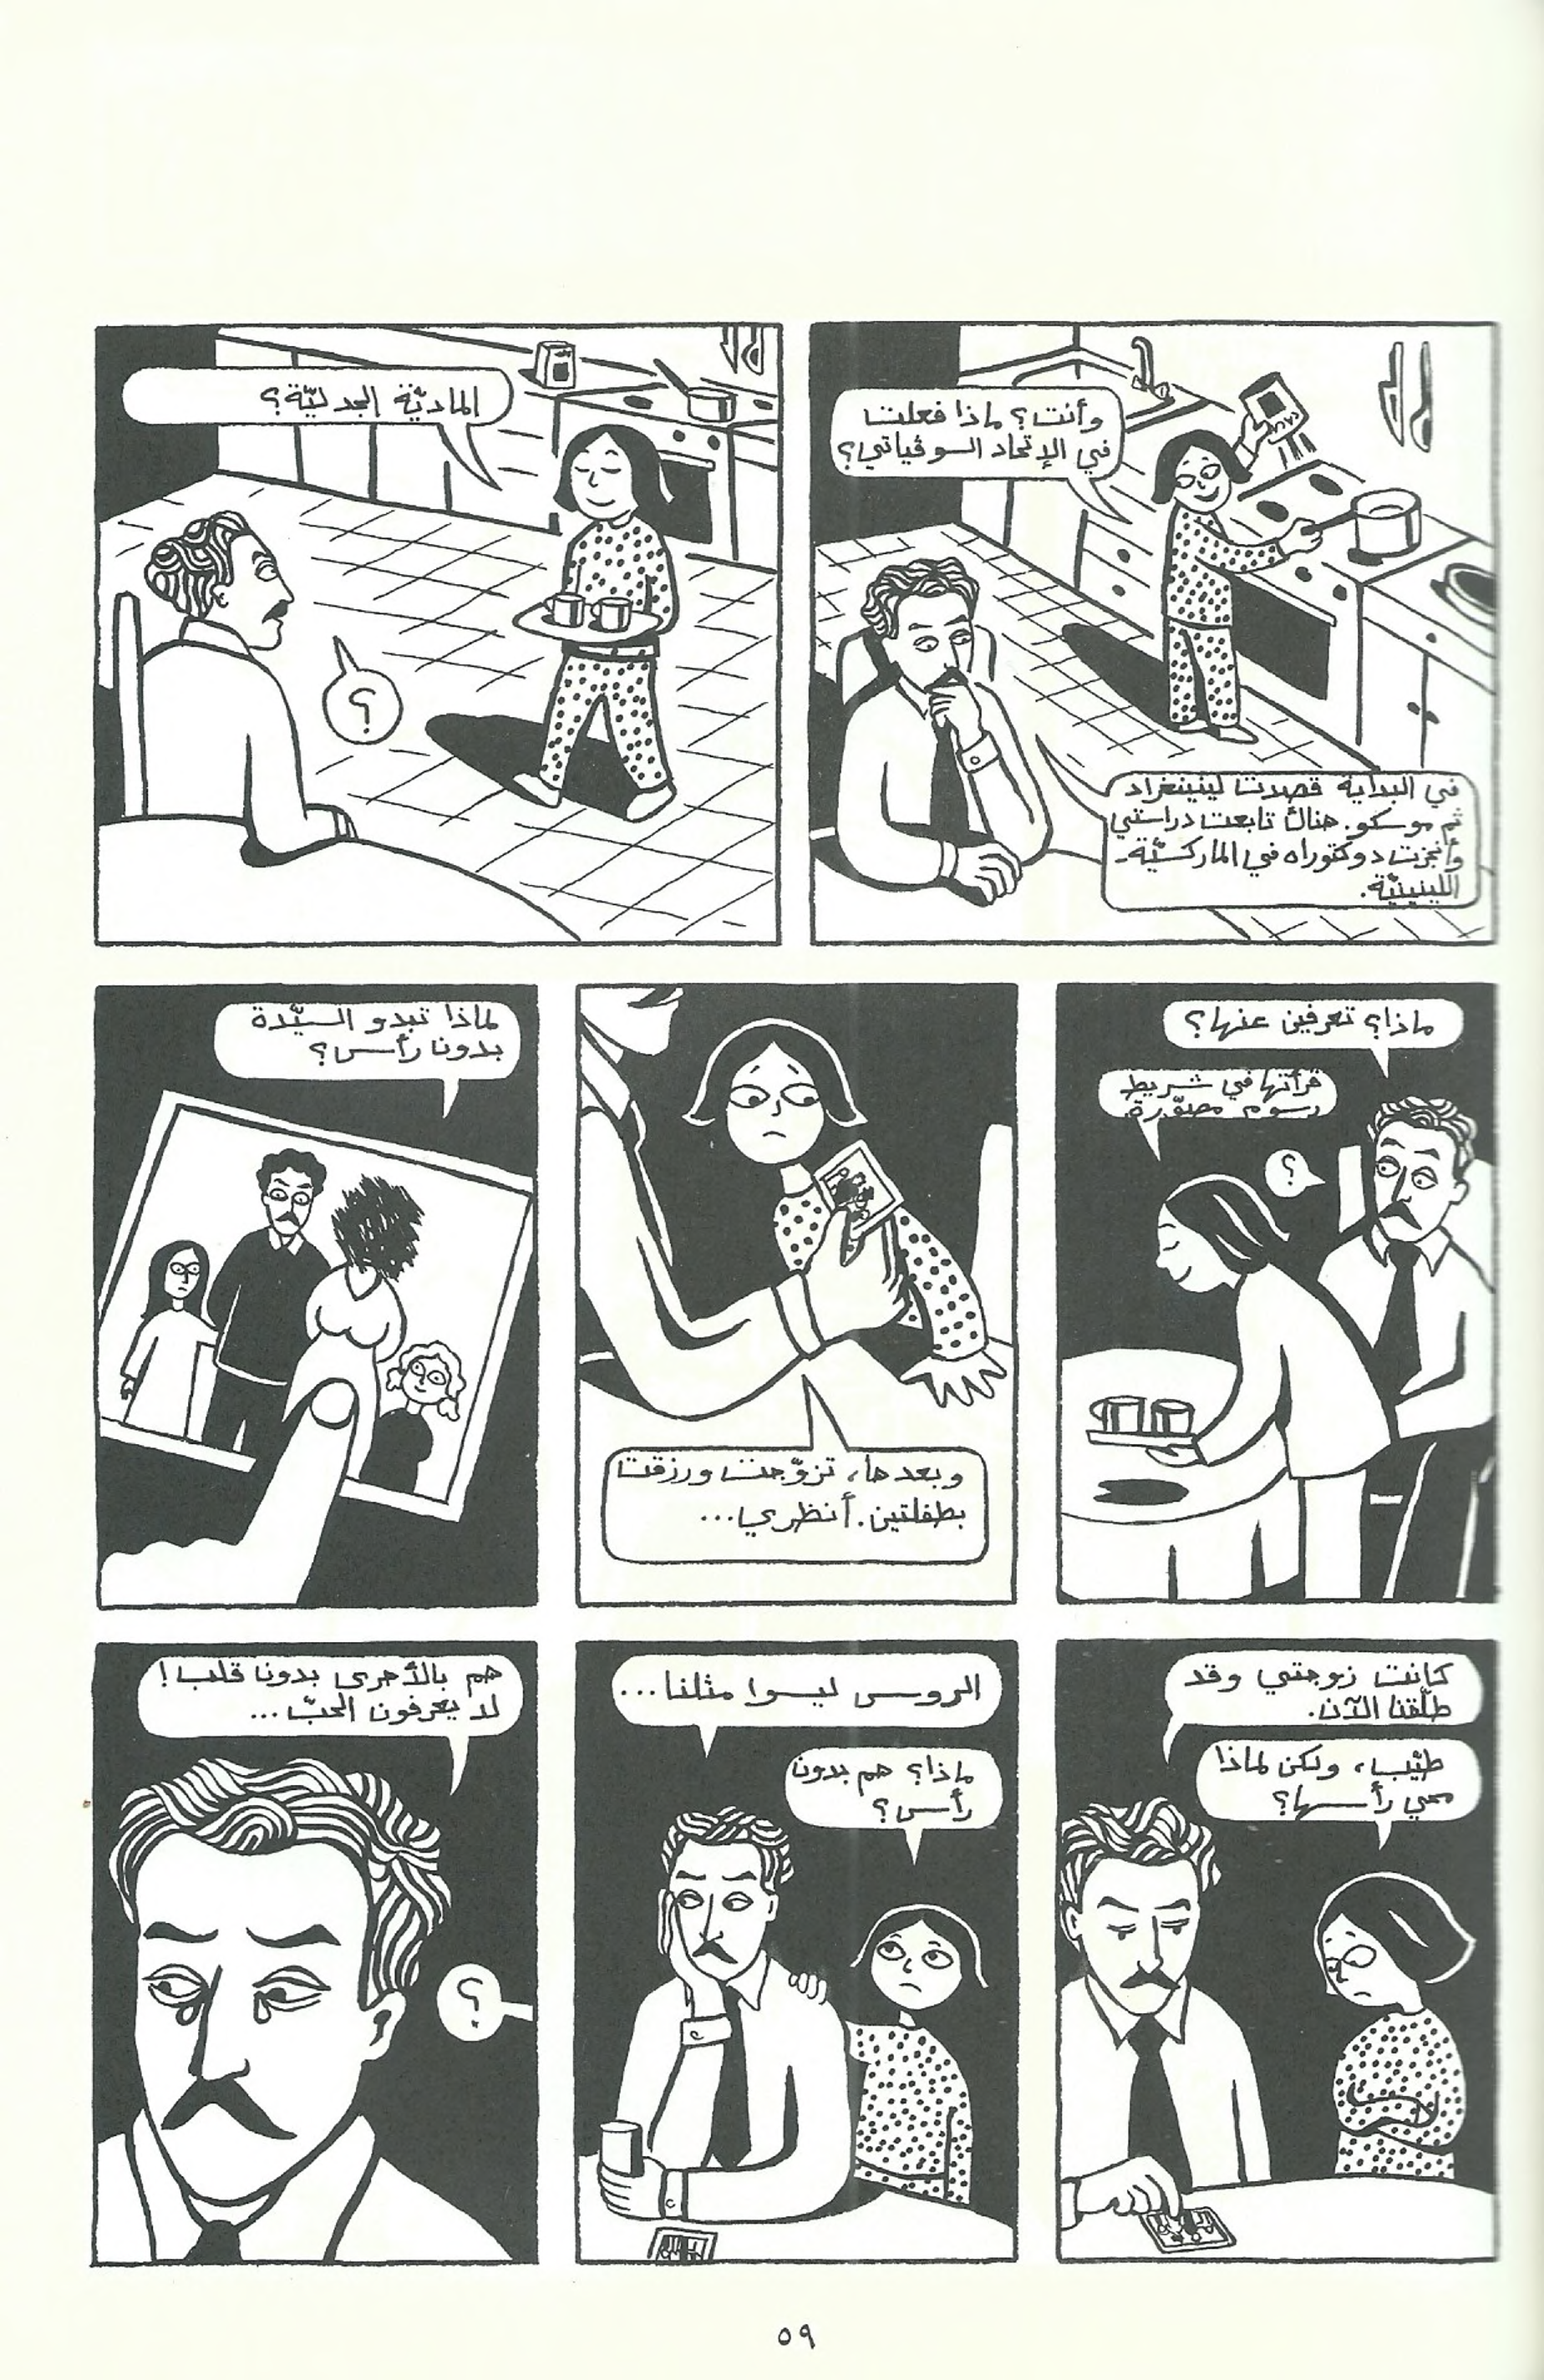 وأنت؟ ماذا فعلت
في الإتحاد السوڤياتي؟
في البداية قصدت لينينغراد
ثم موسكو. هناك تابعت دراستي
وأنجزت دوكتوراه في الماركسيّة-
اللينينيّة.
الماديّة الجدليّة؟
؟
ماذا؟ تعرفين عنها؟
قرأتها في شريط
رسوم مصوّرة.
؟
وبعدها، تزوّجت ورزقت
بطفلتين. أنظري...
لماذا تبدو السيّدة
بدون رأس؟
كانت زوجتي وقد
طلّقنا الآن.
طيّب، ولكن لماذا
محي رأسها؟
الروس ليسوا مثلنا...
ماذا؟ هم بدون
رأس؟
هم بالأحرى بدون قلب!
لا يعرفون الحبّ...
؟
٥٩